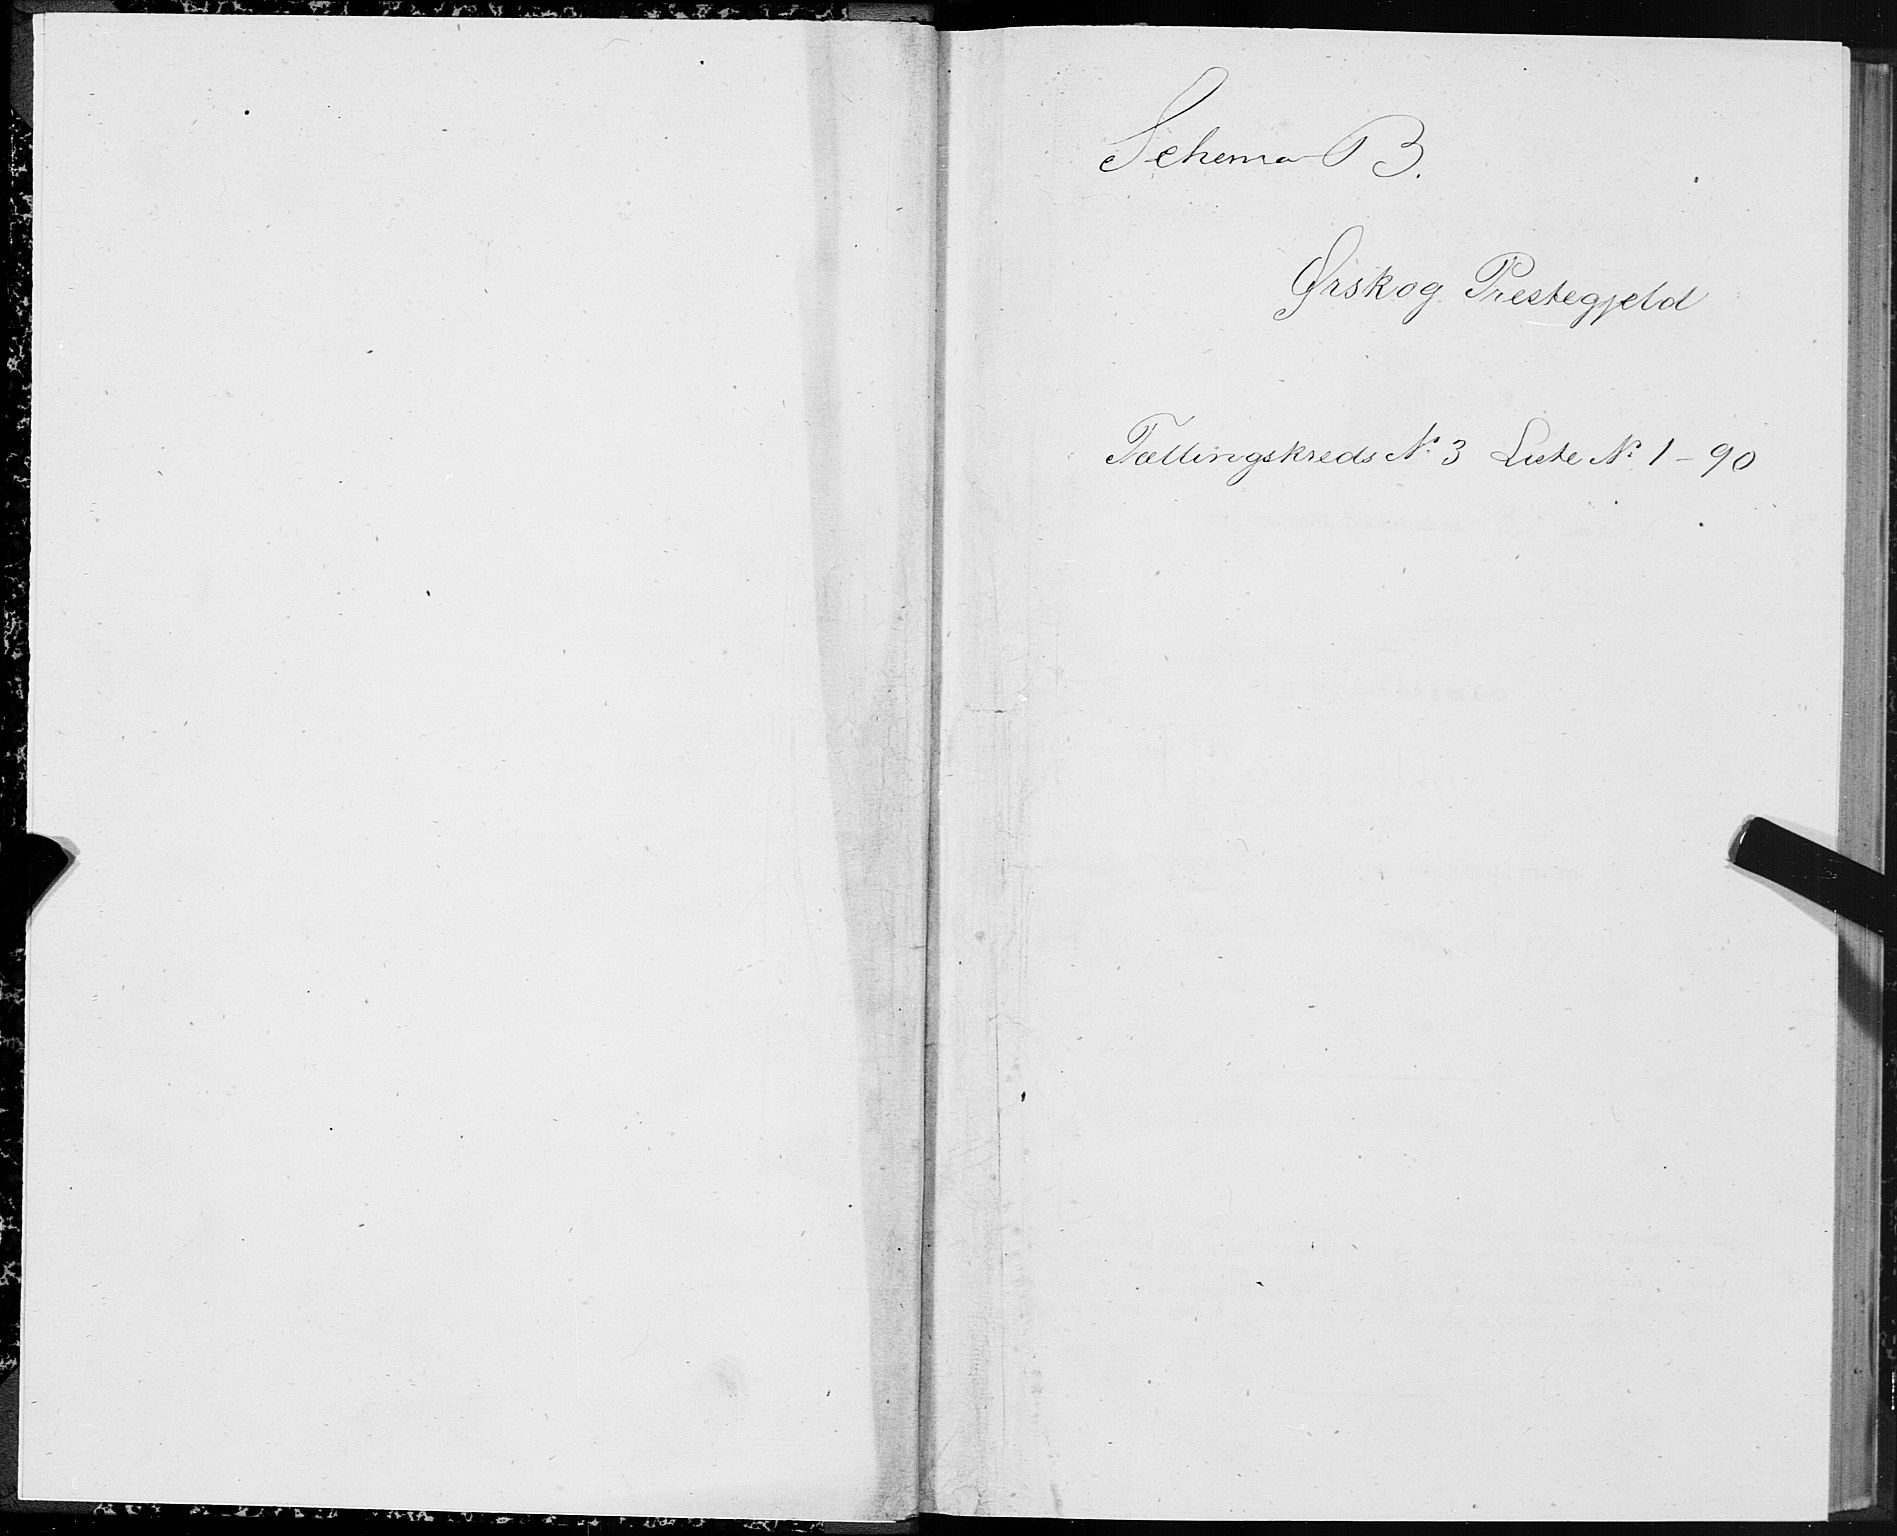 Schema B.
Ørskog Prestegjeld
Tællingskreds № 3 Liste № 1-90